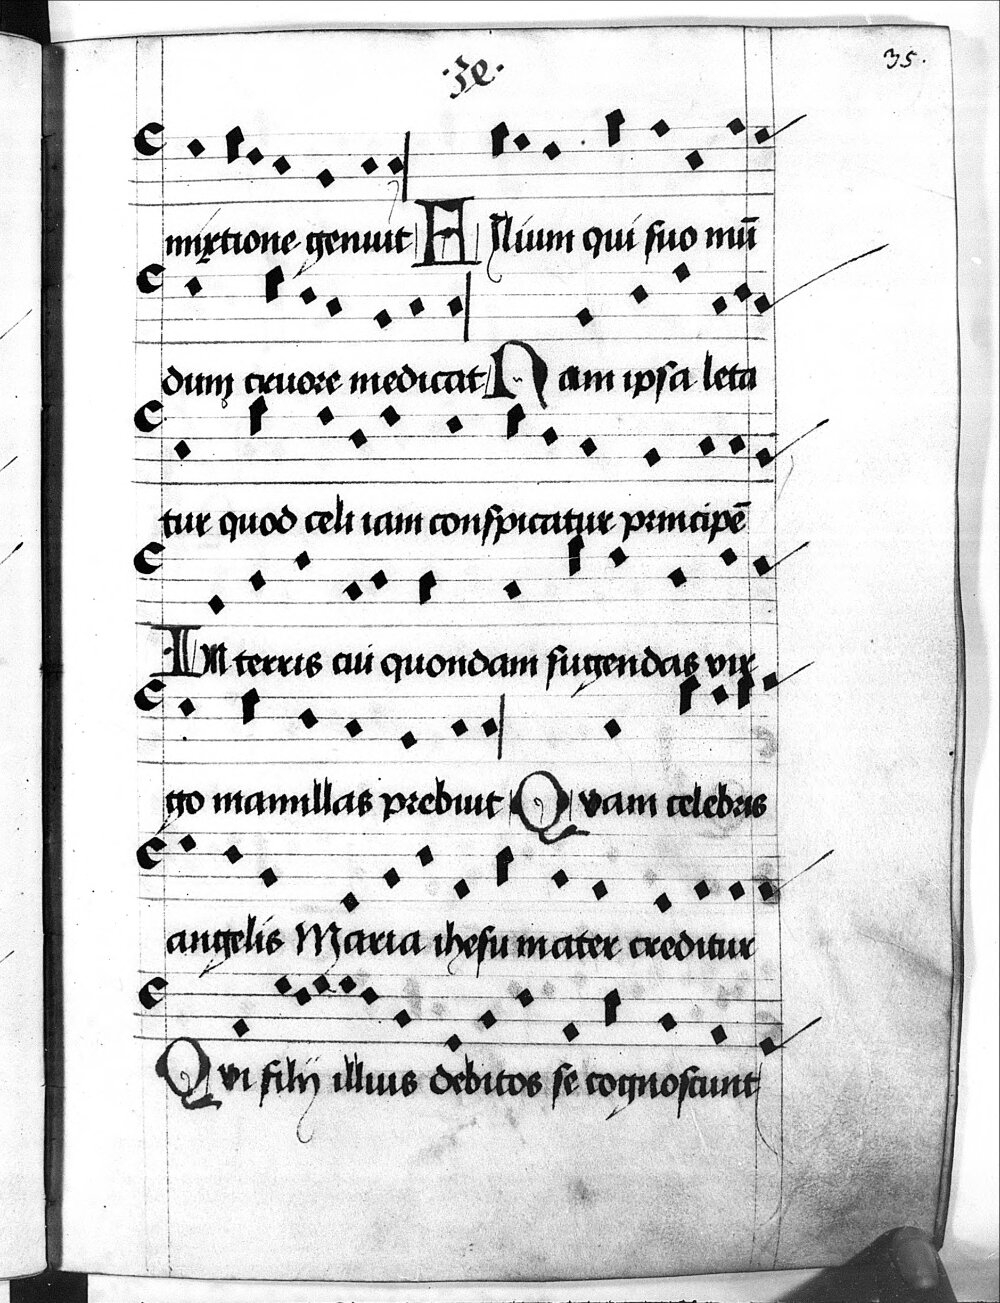 ·3e·
35.
mixtione genuit Filium qui suo mu̅
dum cruore medicat Nam ipsa leta
tur quod celi iam conspicatur principe̅
In terris cui quondam sugendas vir
go mamillas prebuit Quam celebris
angelis Maria ihesu mater creditur
Qui filij illius debitos se cognoscunt